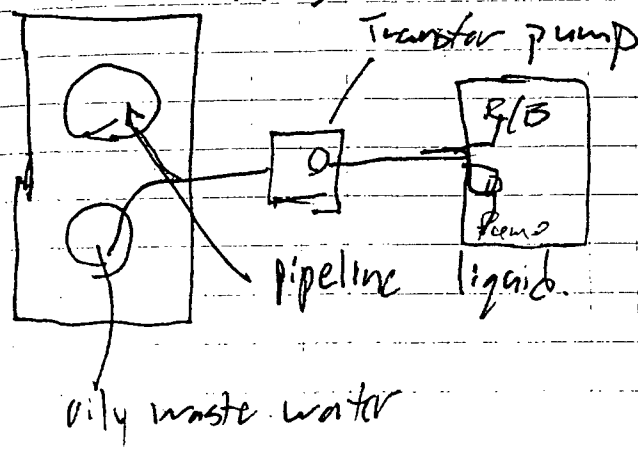 Transfer pump
R/B
Pump
pipeline
liquid.
oily waste water